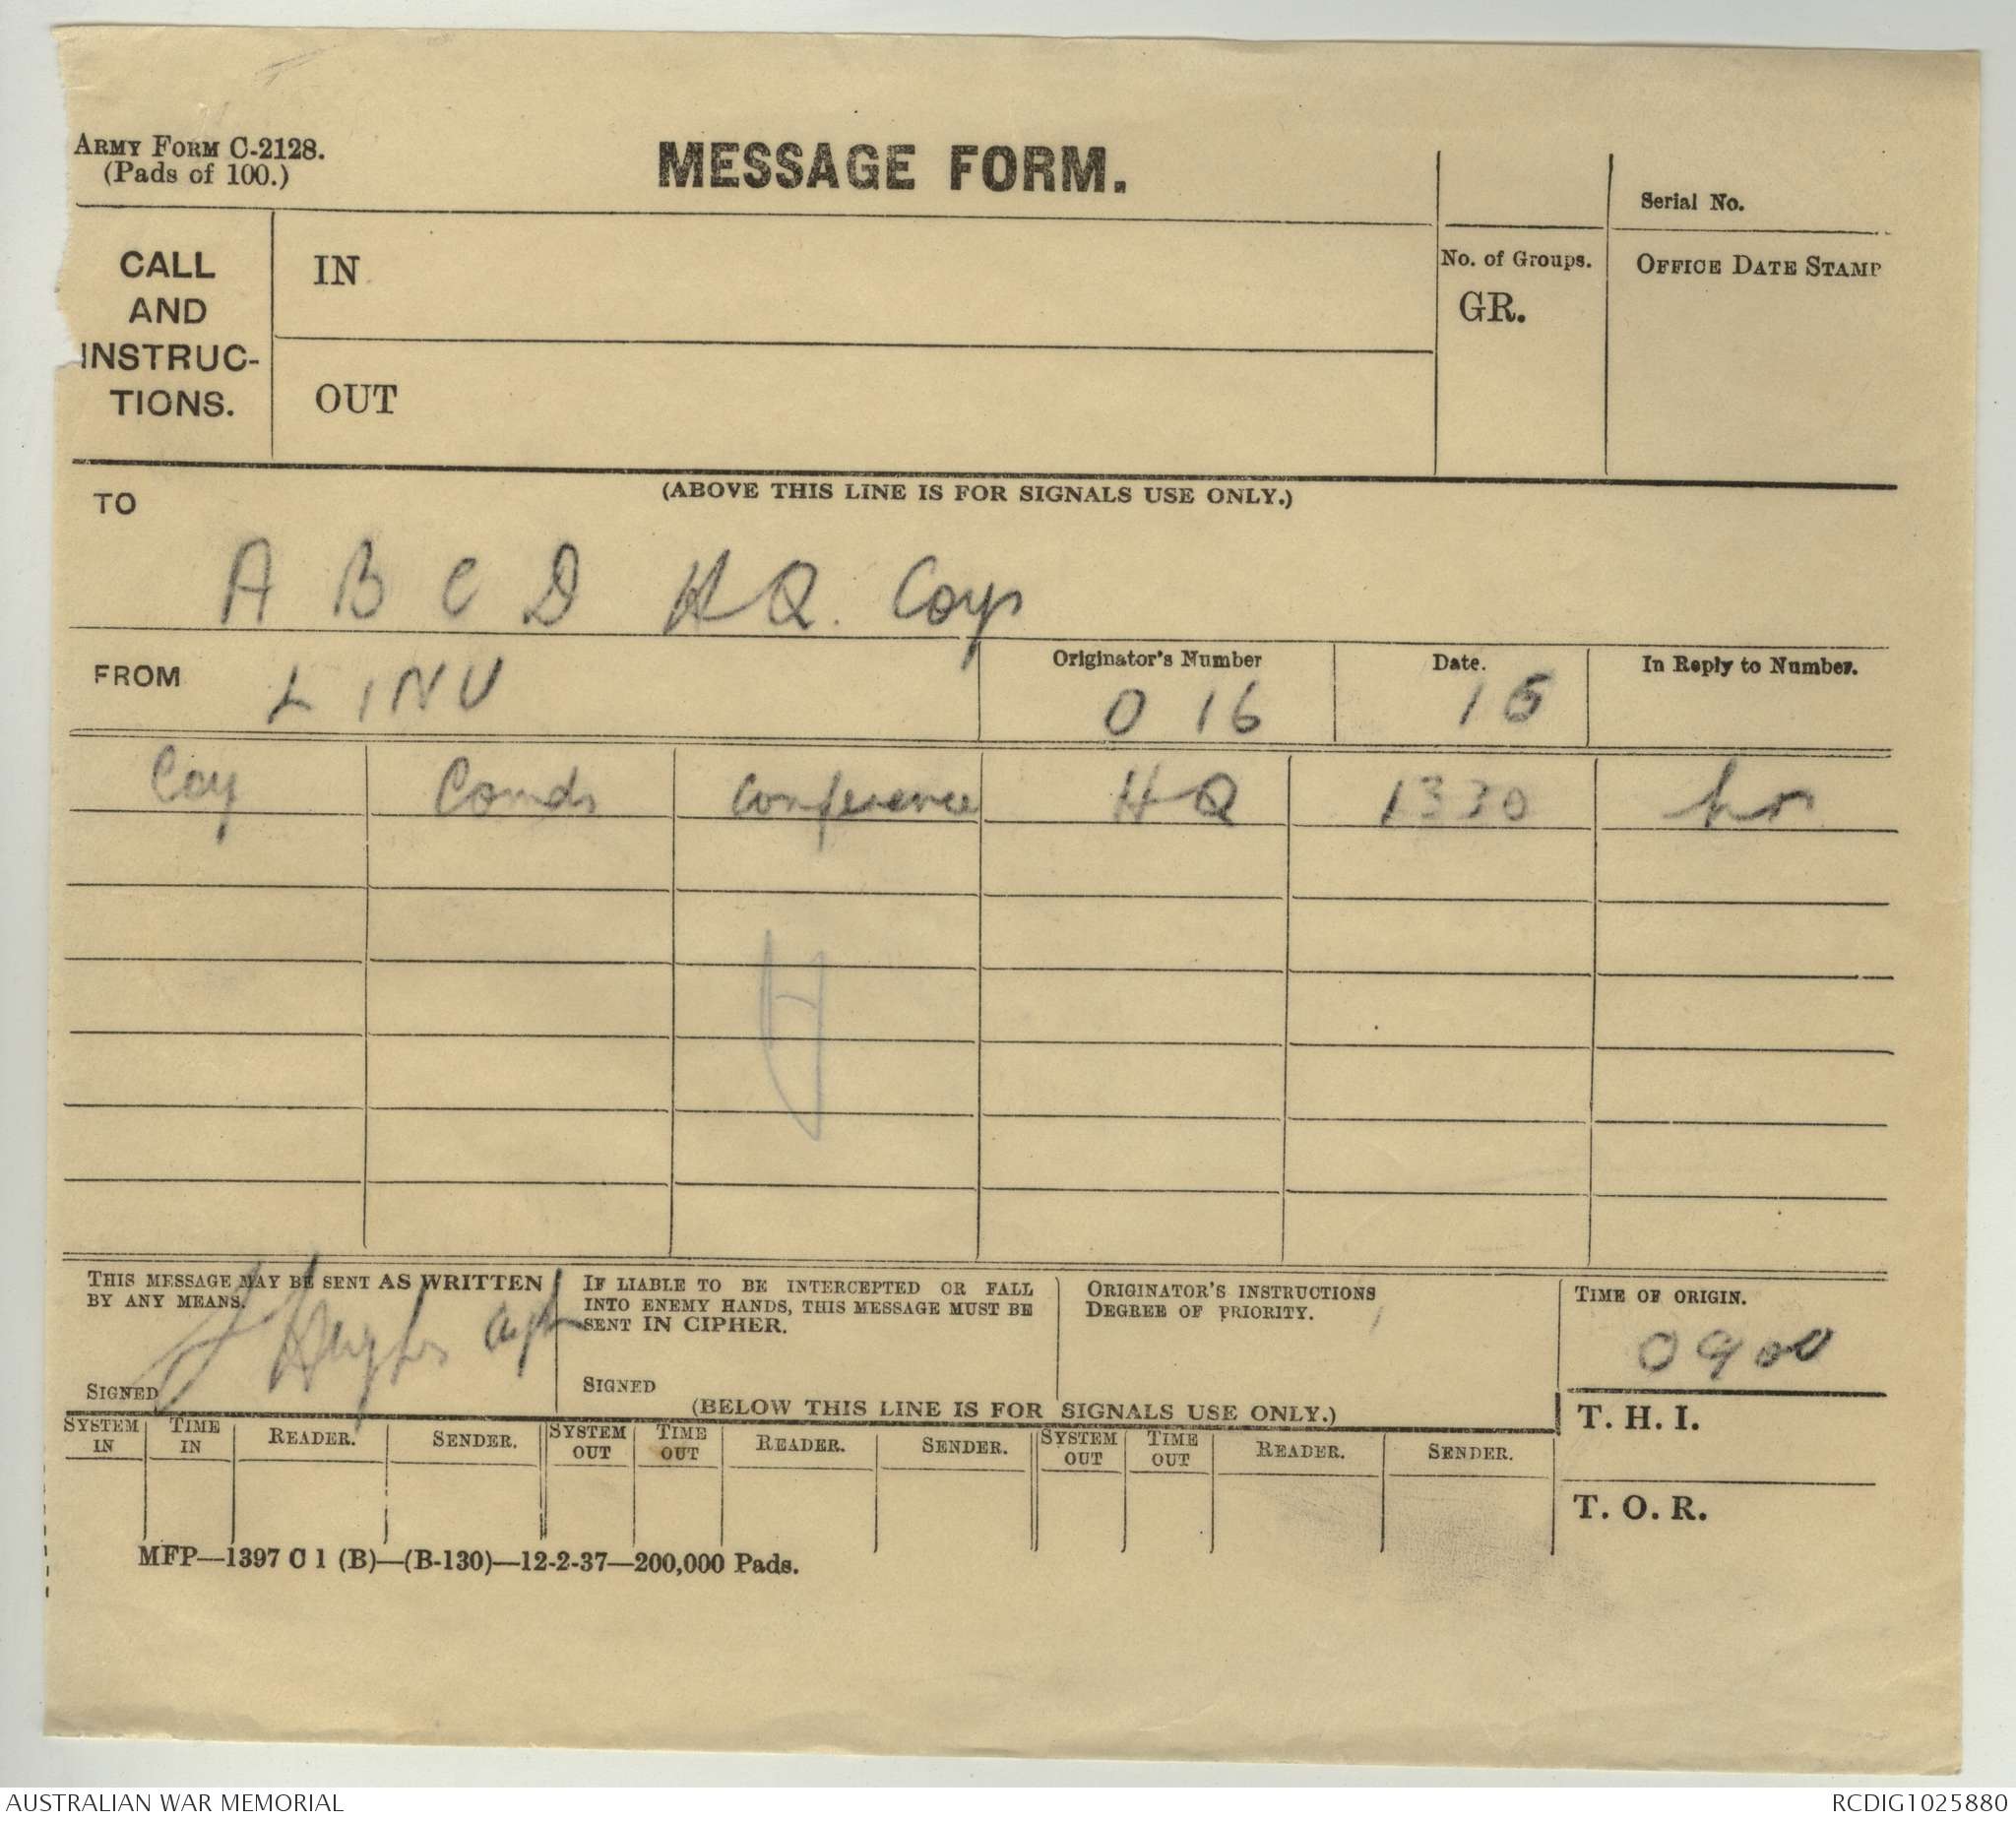 ARMY FORM C-2128.
(Pads of 100.)
MESSAGE FORM.
Serial No.
CALL
AND
INSTRUC-
TIONS.
IN
OUT
No. of Groups.
GR.
OFFICE DATE STAMP
(ABOVE THIS LINE IS FOR SIGNALS USE ONLY.)
TO
A B C D HQ. Coys
FROM LINU
Originator's Number
O 16
Date.
15
In Reply to Number.
Coy Comds conference HQ 1330 hrs
THIS MESSAGE MAY BE SENT AS WRITTEN
BY ANY MEANS.
Hughes Capt
SIGNED
IF LIABLE TO BE INTERCEPTED OR FALL
INTO ENEMY HANDS, THIS MESSAGE MUST BE
SENT IN CIPHER.
SIGNED
ORIGINATOR'S INSTRUCTIONS
DEGREE OF PRIORITY.
TIME OF ORIGIN.
0900
(BELOW THIS LINE IS FOR SIGNALS USE ONLY.)
T. H. I.
SYSTEM IN TIME IN READER. SENDER. SYSTEM OUT TIME OUT READER. SENDER. SYSTEM OUT TIME OUT READER. SENDER.
T. O. R.
MFP—1397 C 1 (B)—(B-130)—12-2-37—200,000 Pads.
AUSTRALIAN WAR MEMORIAL
RCDIG1025880